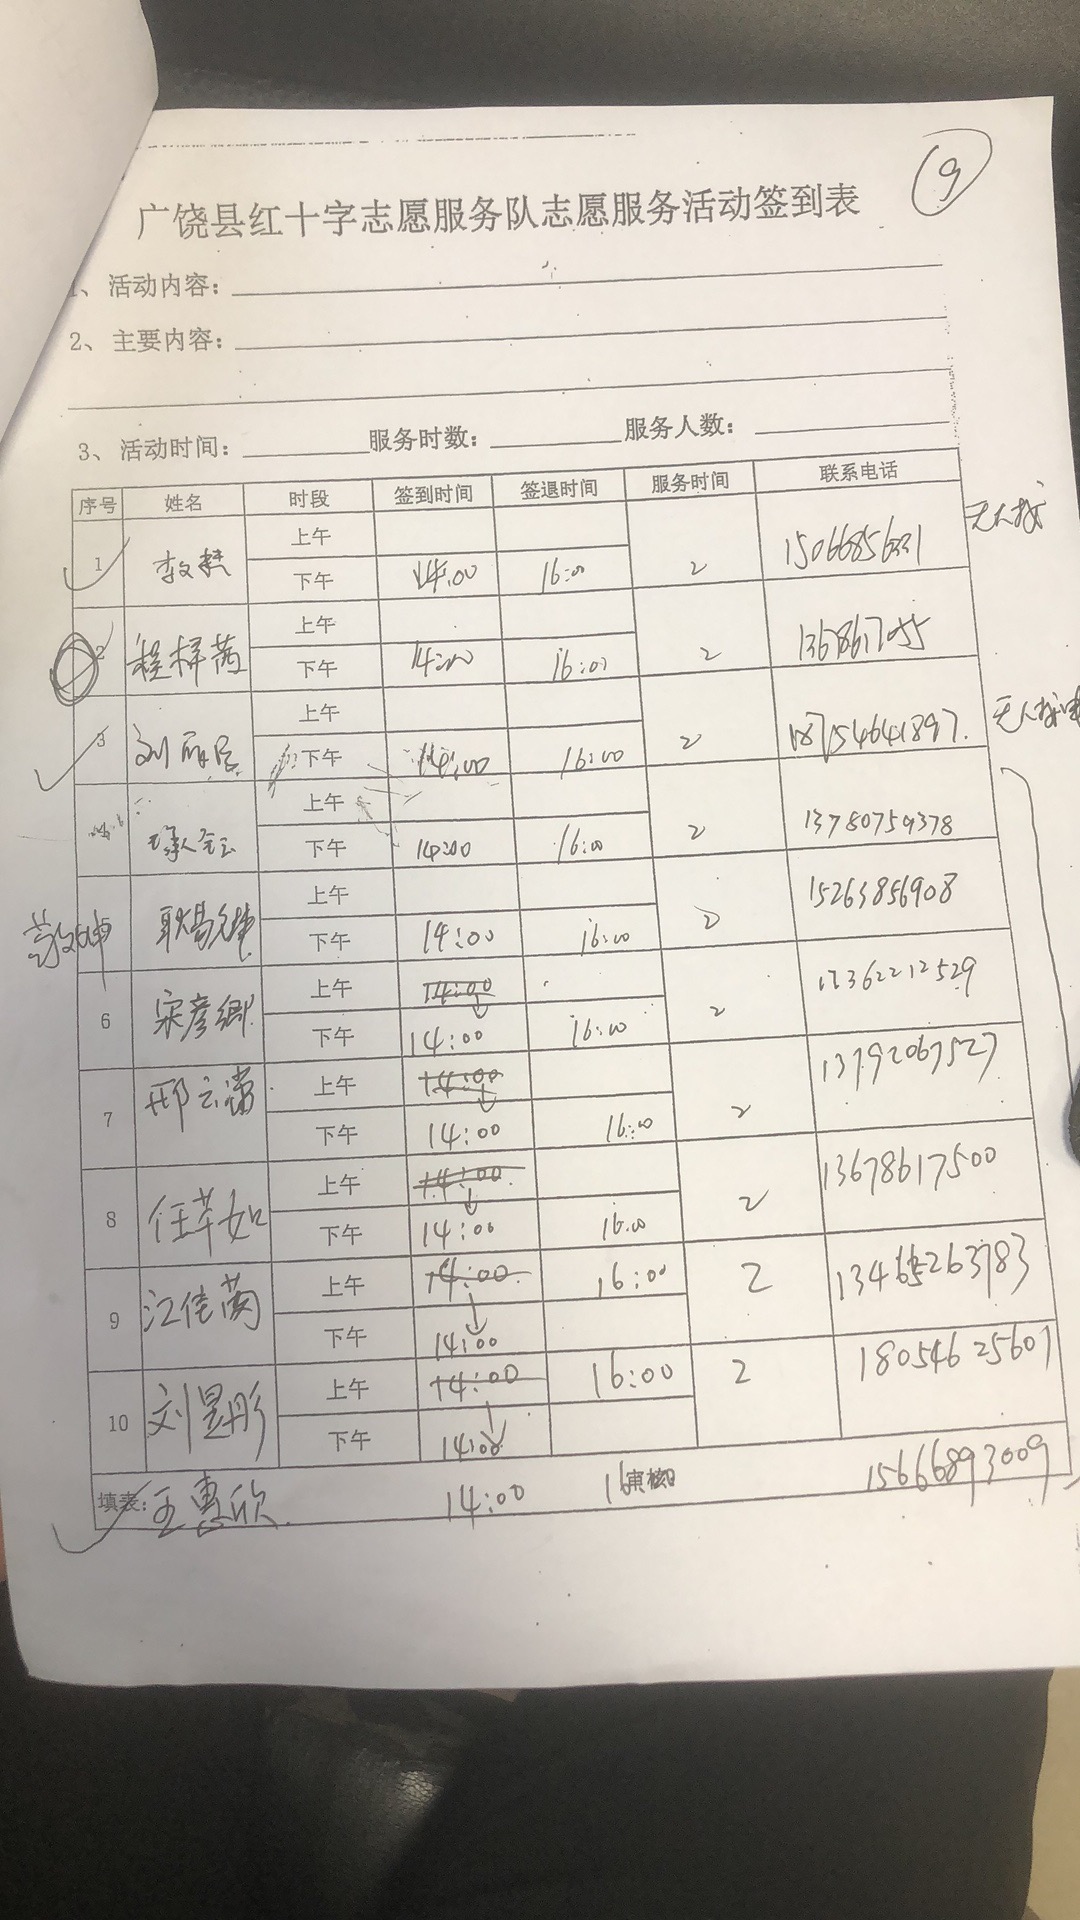 9
广饶县红十字志愿服务队志愿服务活动签到表
1、活动内容：
2、主要内容：
3、活动时间： 服务时数： 服务人数：
序号 姓名 时段 签到时间 签退时间 服务时间 联系电话
1 上午
下午 14:00 16:00 2
无人接
2 程梓茜 上午
下午 14:00 16:00 2
3 上午
下午 14:00 16:00 2 18754641897.
无人接
上午
下午 14:00 16:00 2 13780759378
上午
下午 14:00 16:00 2 15263856908
6 宋彦卿 上午 14:00
下午 14:00 16:00 2
7 邢云 上午 14:00
下午 14:00 16:00 2 13792067527
8 任芊如 上午 14:00
下午 14:00 16:00 2 13678617500
9 江佳茵 上午 14:00 16:00 2
下午 14:00
10 刘昱彤 上午 14:00 16:00 2 18054625601
下午 14:00
填表：王惠欣 14:00 16 审核 15666893009